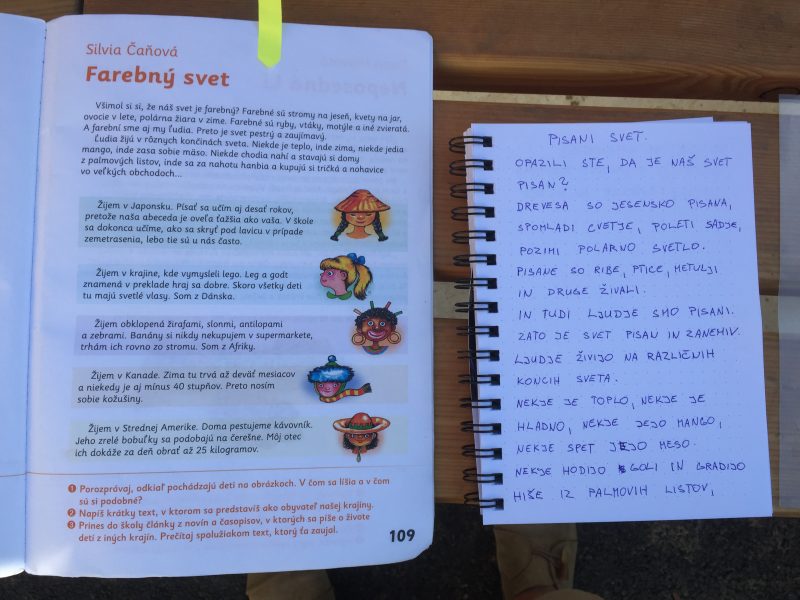 Silvia Čaňová
Farebný svet
Všimol si si, že náš svet je farebný? Farebné sú stromy na jeseň, kvety na jar,
ovocie v lete, polárna žiara v zime. Farebné sú ryby, vtáky, motýle a iné zvieratá.
A farební sme aj my ľudia. Preto je svet pestrý a zaujímavý.
Ľudia žijú v rôznych končinách sveta. Niekde je teplo, inde zima, niekde jedia
mango, inde zasa sobie mäso. Niekde chodia nahí a stavajú si domy
z palmových listov, inde sa za nahotu hanbia a kupujú si tričká a nohavice
vo veľkých obchodoch...
Žijem v Japonsku. Písať sa učím aj desať rokov,
pretože naša abeceda je oveľa ťažšia ako vaša. V škole
sa dokonca učíme, ako sa skryť pod lavicu v prípade
zemetrasenia, lebo tie sú u nás často.
Žijem v krajine, kde vymysleli lego. Leg a godt
znamená v preklade hraj sa dobre. Skoro všetky deti
tu majú svetlé vlasy. Som z Dánska.
Žijem obklopená žirafami, slonmi, antilopami
a zebrami. Banány si nikdy nekupujem v supermarkete,
trhám ich rovno zo stromu. Som z Afriky.
Žijem v Kanade. Zima tu trvá až deväť mesiacov
a niekedy je aj mínus 40 stupňov. Preto nosím
sobie kožušiny.
Žijem v Strednej Amerike. Doma pestujeme kávovník.
Jeho zrelé bobuľky sa podobajú na čerešne. Môj otec
ich dokáže za deň obrať až 25 kilogramov.
1 Porozprávaj, odkiaľ pochádzajú deti na obrázkoch. V čom sa líšia a v čom
sú si podobné?
2 Napíš krátky text, v ktorom sa predstavíš ako obyvateľ našej krajiny.
3 Prines do školy články z novín a časopisov, v ktorých sa píše o živote
detí z iných krajín. Prečítaj spolužiakom text, ktorý ťa zaujal.
109
PISANI SVET.
OPAZILI STE, DA JE NAŠ SVET
PISAN?
DREVESA SO JESENSKO PISANA,
SPOMLADI CVETJE, POLETI SADJE,
POZIMI POLARNO SVETLO.
PISANE SO RIBE, PTICE, METULJI
IN DRUGE ŽIVALI.
IN TUDI LJUDJE SMO PISANI.
ZATO JE SVET PISAN IN ZANIMIV.
LJUDJE ŽIVIJO NA RAZLIČNIH
KONCIH SVETA.
NEKJE JE TOPLO, NEKJE JE
HLADNO, NEKJE JEJO MANGO,
NEKJE SPET JEJO MESO.
NEKJE HODIJO GOLI IN GRADIJO
HIŠE IZ PALMOVIH LISTOV,